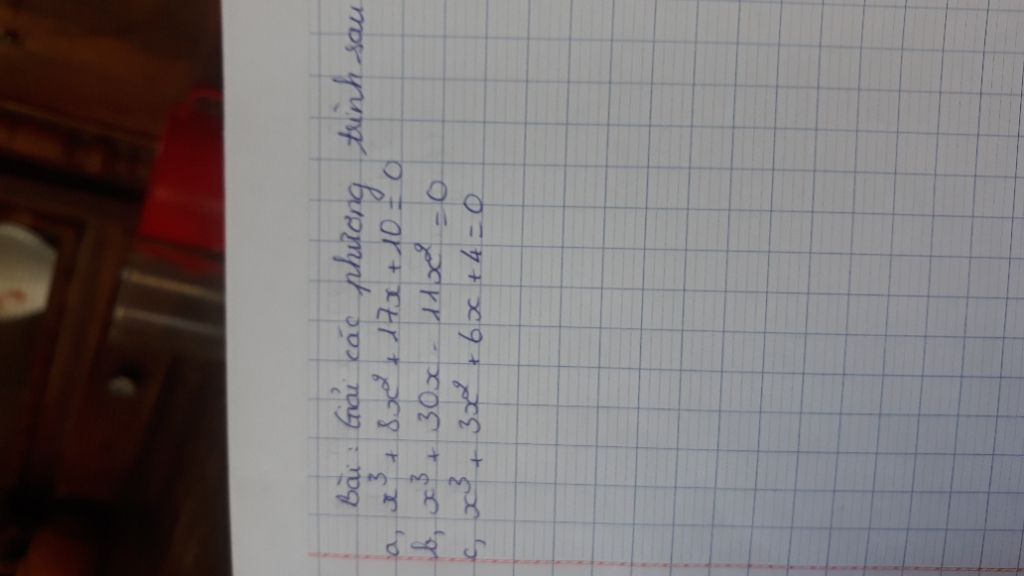 Bài: Giải các phương trình sau
a, x³ + 8x² + 17x + 10 = 0
b, x³ + 30x - 11x² = 0
c, x³ + 3x² + 6x + 4 = 0